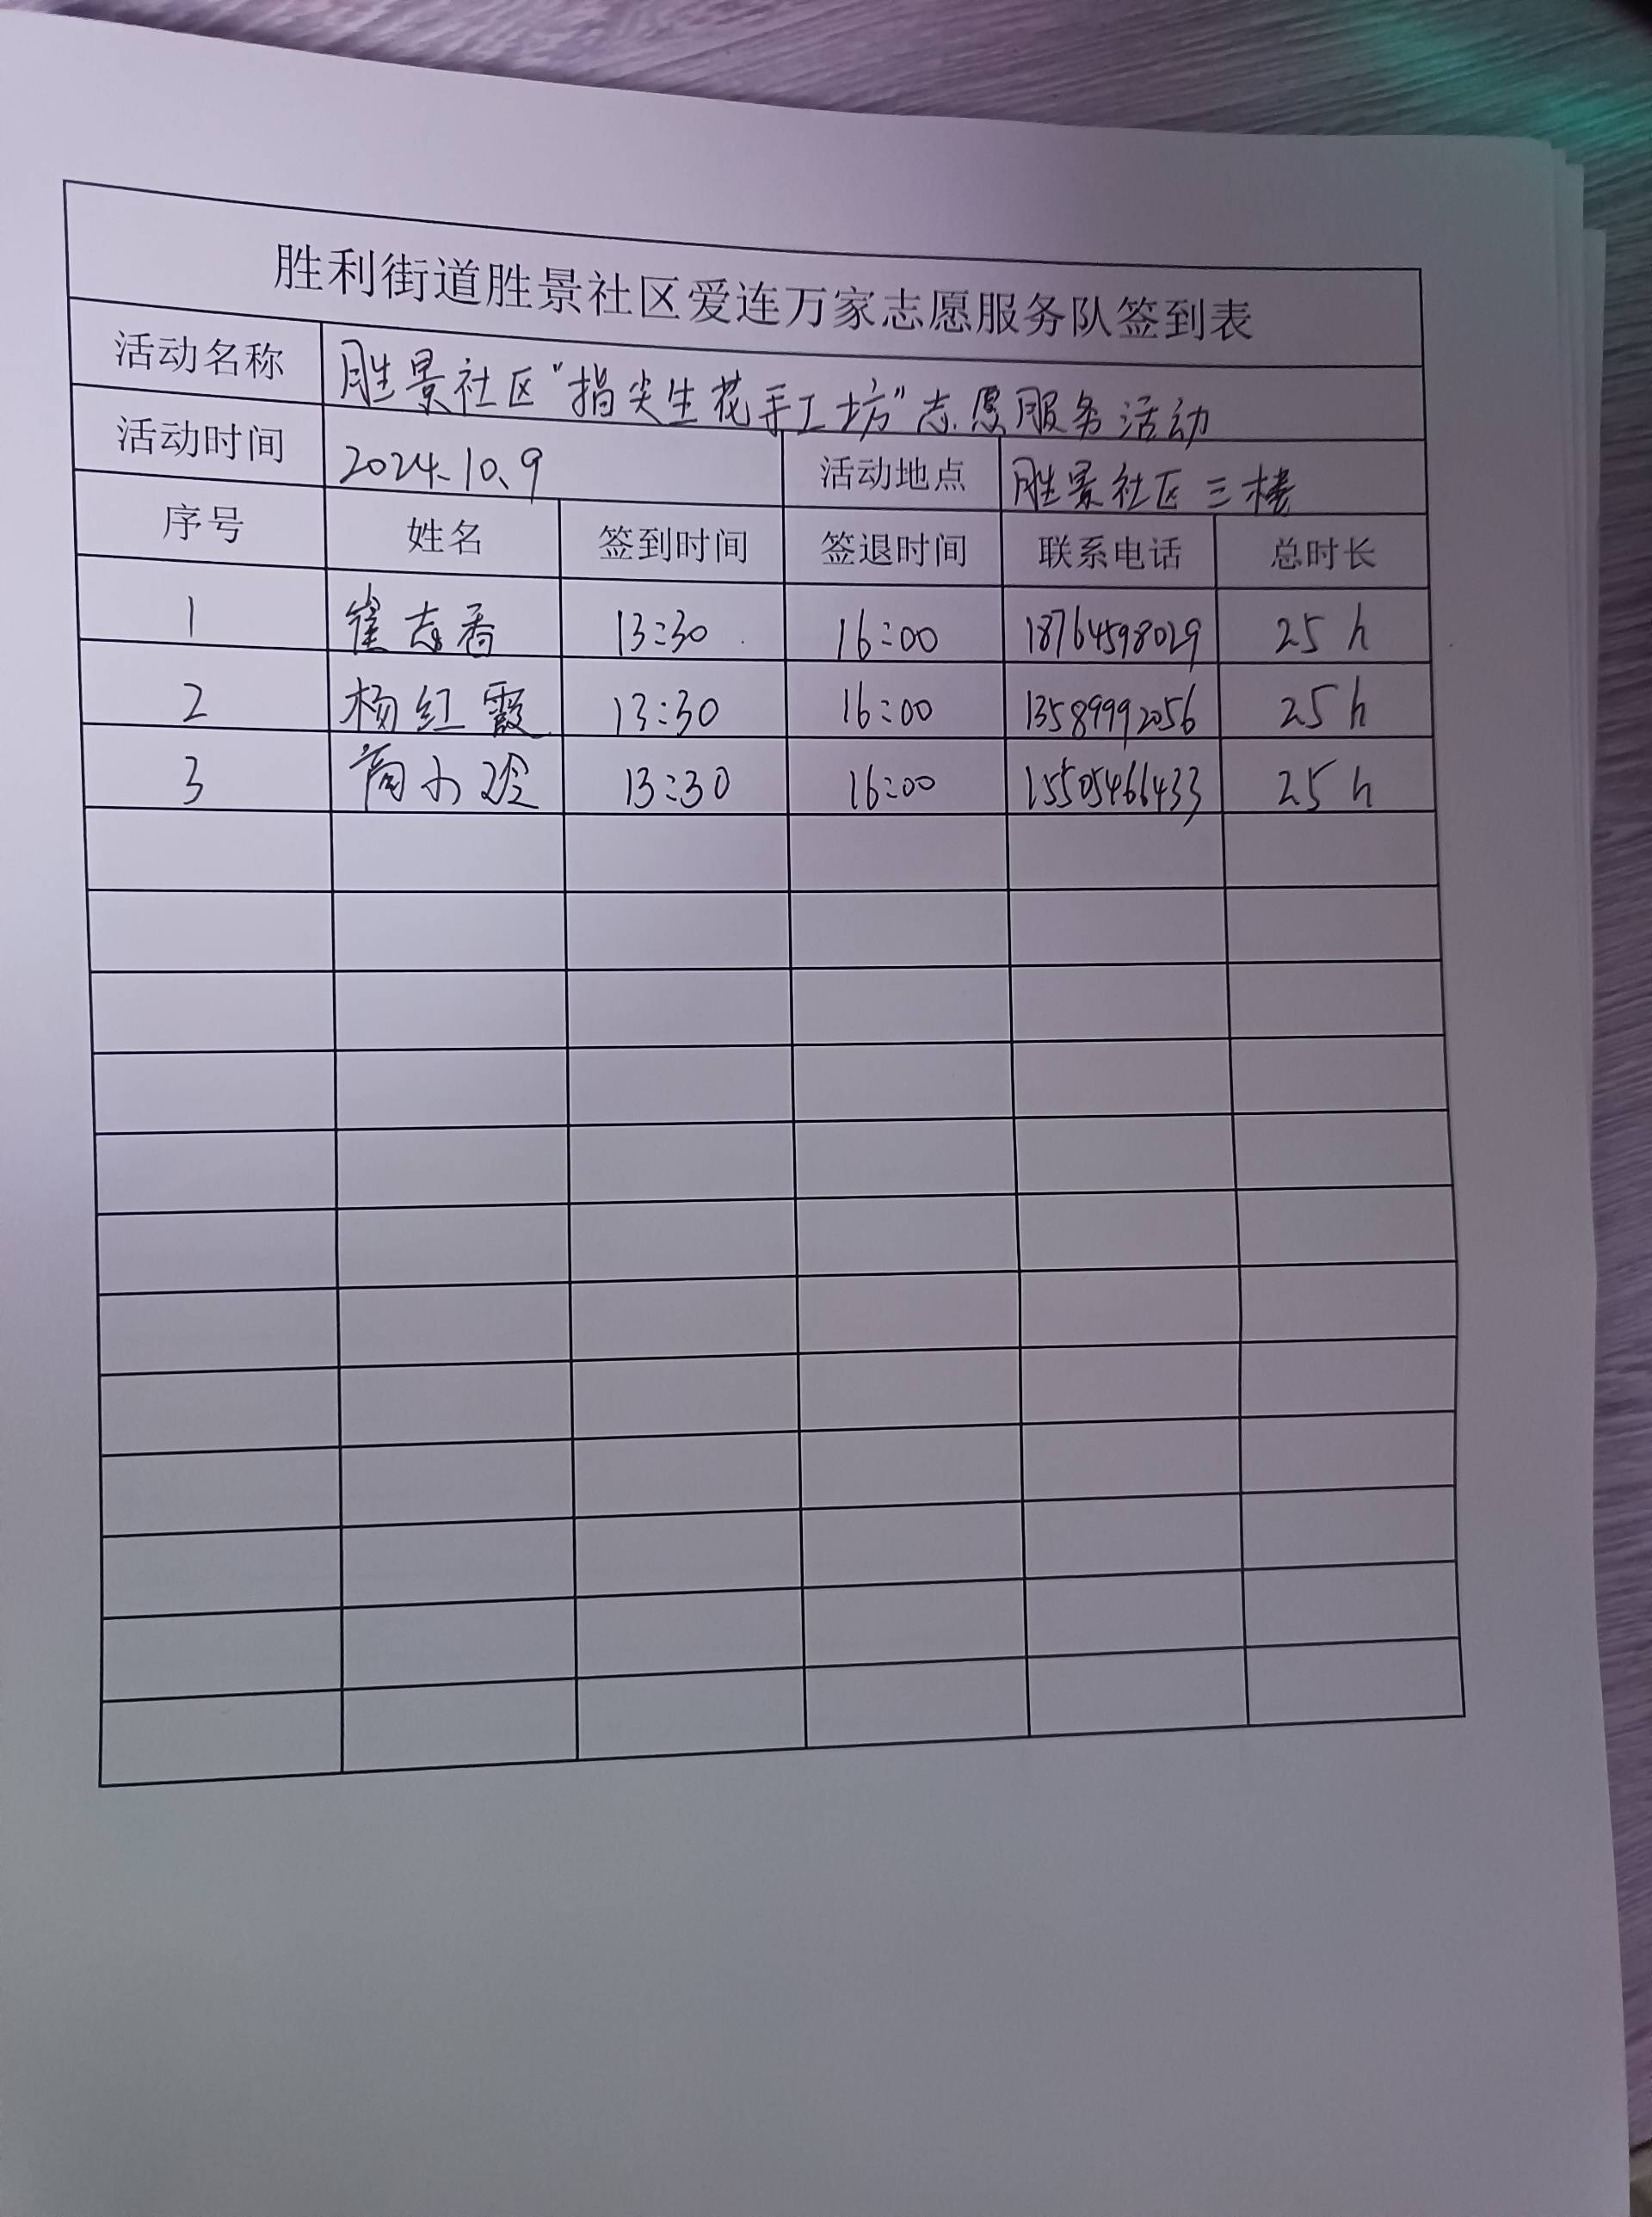 胜利街道胜景社区爱连万家志愿服务队签到表
活动名称 胜景社区“指尖生花手工坊”志愿服务活动
活动时间 2024.10.9 活动地点 胜景社区三楼
序号 姓名 签到时间 签退时间 联系电话 总时长
1 崔志香 13:30 16:00 18764598029 25h
2 杨红霞 13:30 16:00 13589992056 25h
3 商小玲 13:30 16:00 15505466433 25h